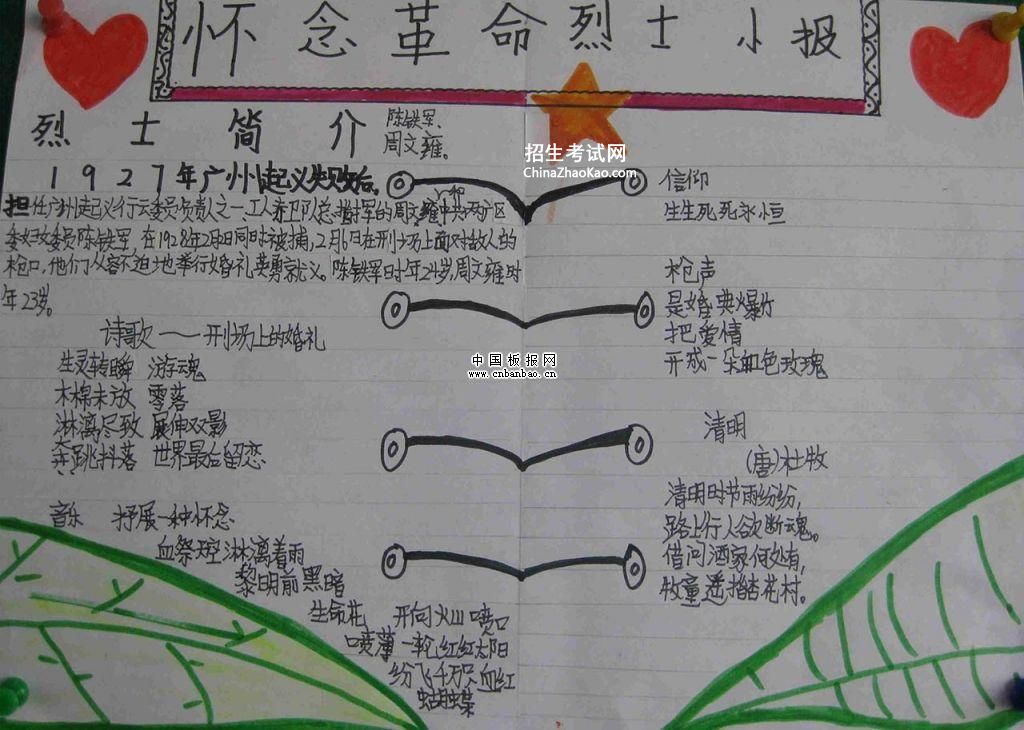 怀念革命烈士小报
烈士简介
陈铁军、
周文雍。
招生考试网
ChinaZhaoKao.com
1927年广州起义失败后。
担任广州起义行云委员负责人之一,工人赤卫队总指挥的周文雍和中共两广区
委妇委员陈铁军,在1928年2月2日同时被捕,2月6日在刑场上面对敌人的
枪口,他们从容不迫地举行婚礼英勇就义。陈铁军时年24岁,周文雍时
年23岁。
诗歌——刑场上的婚礼
生灵转瞬 游魂
木棉未放 零落
淋漓尽致 展伸双影
奔跳抖落 世界最后留恋
音乐 抒展一种怀念
血祭 淋漓着雨
黎明前黑暗
生命花 开向火山喷口
喷薄一轮红红太阳
纷飞千万只血红
蝴蝶
信仰
生生死死永恒
枪声
是婚典爆竹
把爱情
开成一朵血色玫瑰
中国板报网
www.cnbanbao.cn
清明
(唐)杜牧
清明时节雨纷纷,
路上行人欲断魂。
借问酒家何处有,
牧童遥指杏花村。